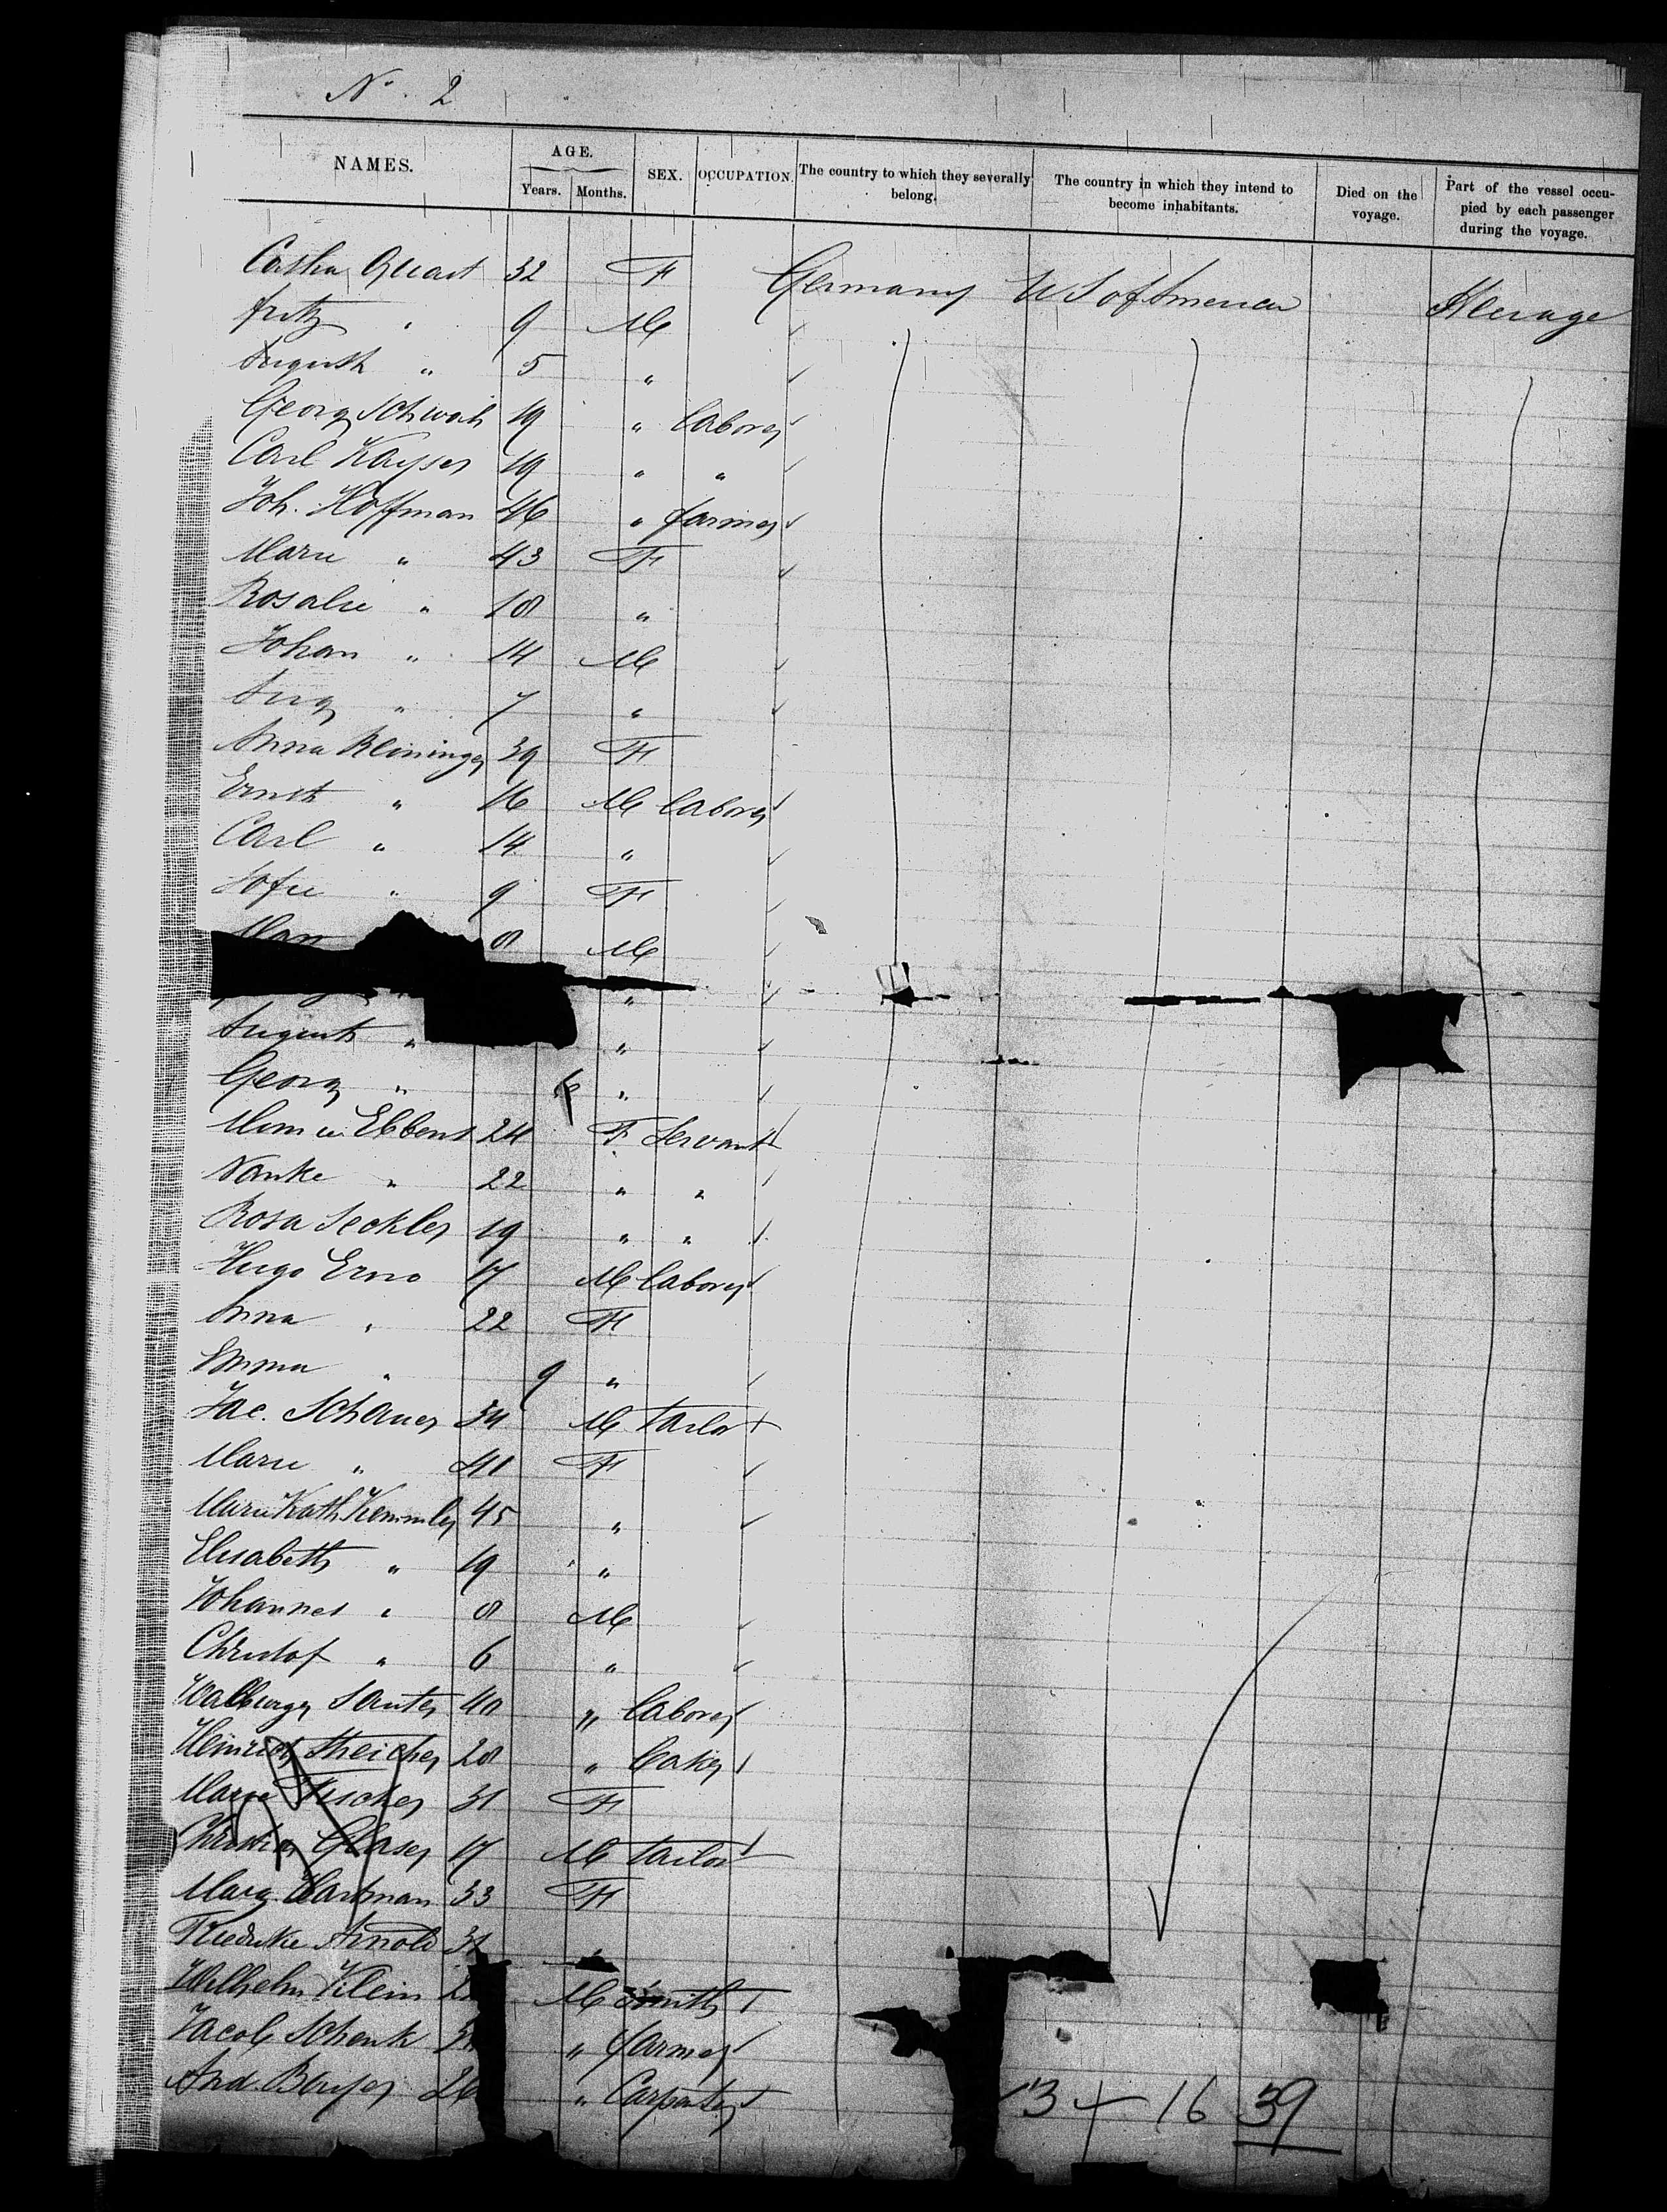 No. 2
NAMES. AGE. Years. Months. SEX. OCCUPATION. The country to which they severally belong. The country in which they intend to become inhabitants. Died on the voyage. Part of the vessel occupied by each passenger during the voyage.
Quast 32 F Germany U S of America Steerage
Fritz " 9 M
August " 5 "
Georg Schwab 19 " labores
Carl Kayser 19 " "
Joh. Hoffman 46 " farmer
Marie " 43 F
Rosalie " 18 "
Johan " 14 M
Aug " 7 "
Anna Bleininger 39 F
Ernst " 16 M labores
Carl " 14 "
Sofie " 9 F
8 M
"
August " "
Georg " "
Ebbens 24 F Servant
Nanke " 22 " "
Rosa Seckler 19 " "
Hugo Erno 17 M labores
Anna " 22 F
Emma " 9 "
Jac. Schauer 54 M Tailor
Marie " 41 F
Marie Kath Kemmler 45 "
Elisabeth " 19 "
Johannes " 8 M
Christof " 6 "
Walburga Sauter 40 " labores
Heinrich 28 " baker
Marie Fischer 31 F
Christian Glaser 17 M tailor
Marg. Hartman 33 F
Friedrike Arnold
Wilhelm Klein M Smith
Jacob Schenk " farmer
And. Bayer 26 " Carpenter
13 + 16 39